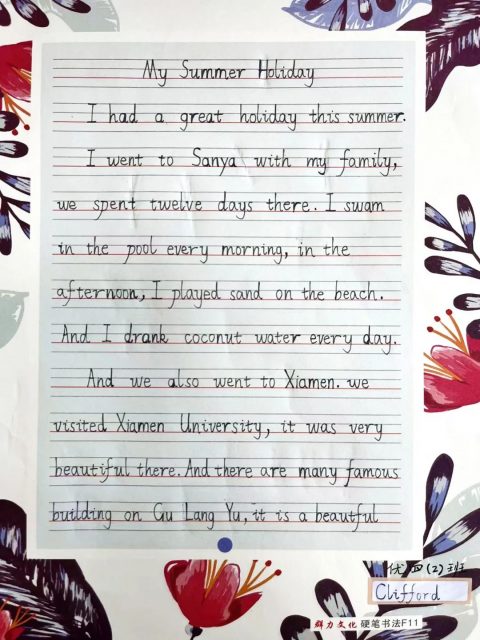 My Summer Holiday
I had a great holiday this summer.
I went to Sanya with my family,
we spent twelve days there. I swam
in the pool every morning, in the
afternoon, I played sand on the beach.
And I drank coconut water every day.
And we also went to Xiamen. we
visited Xiamen University, it was very
beautiful there. And there are many famous
building on Gu Lang Yu, it is a beautful
优四(2)班
Clifford
群力文化 硬笔书法F11